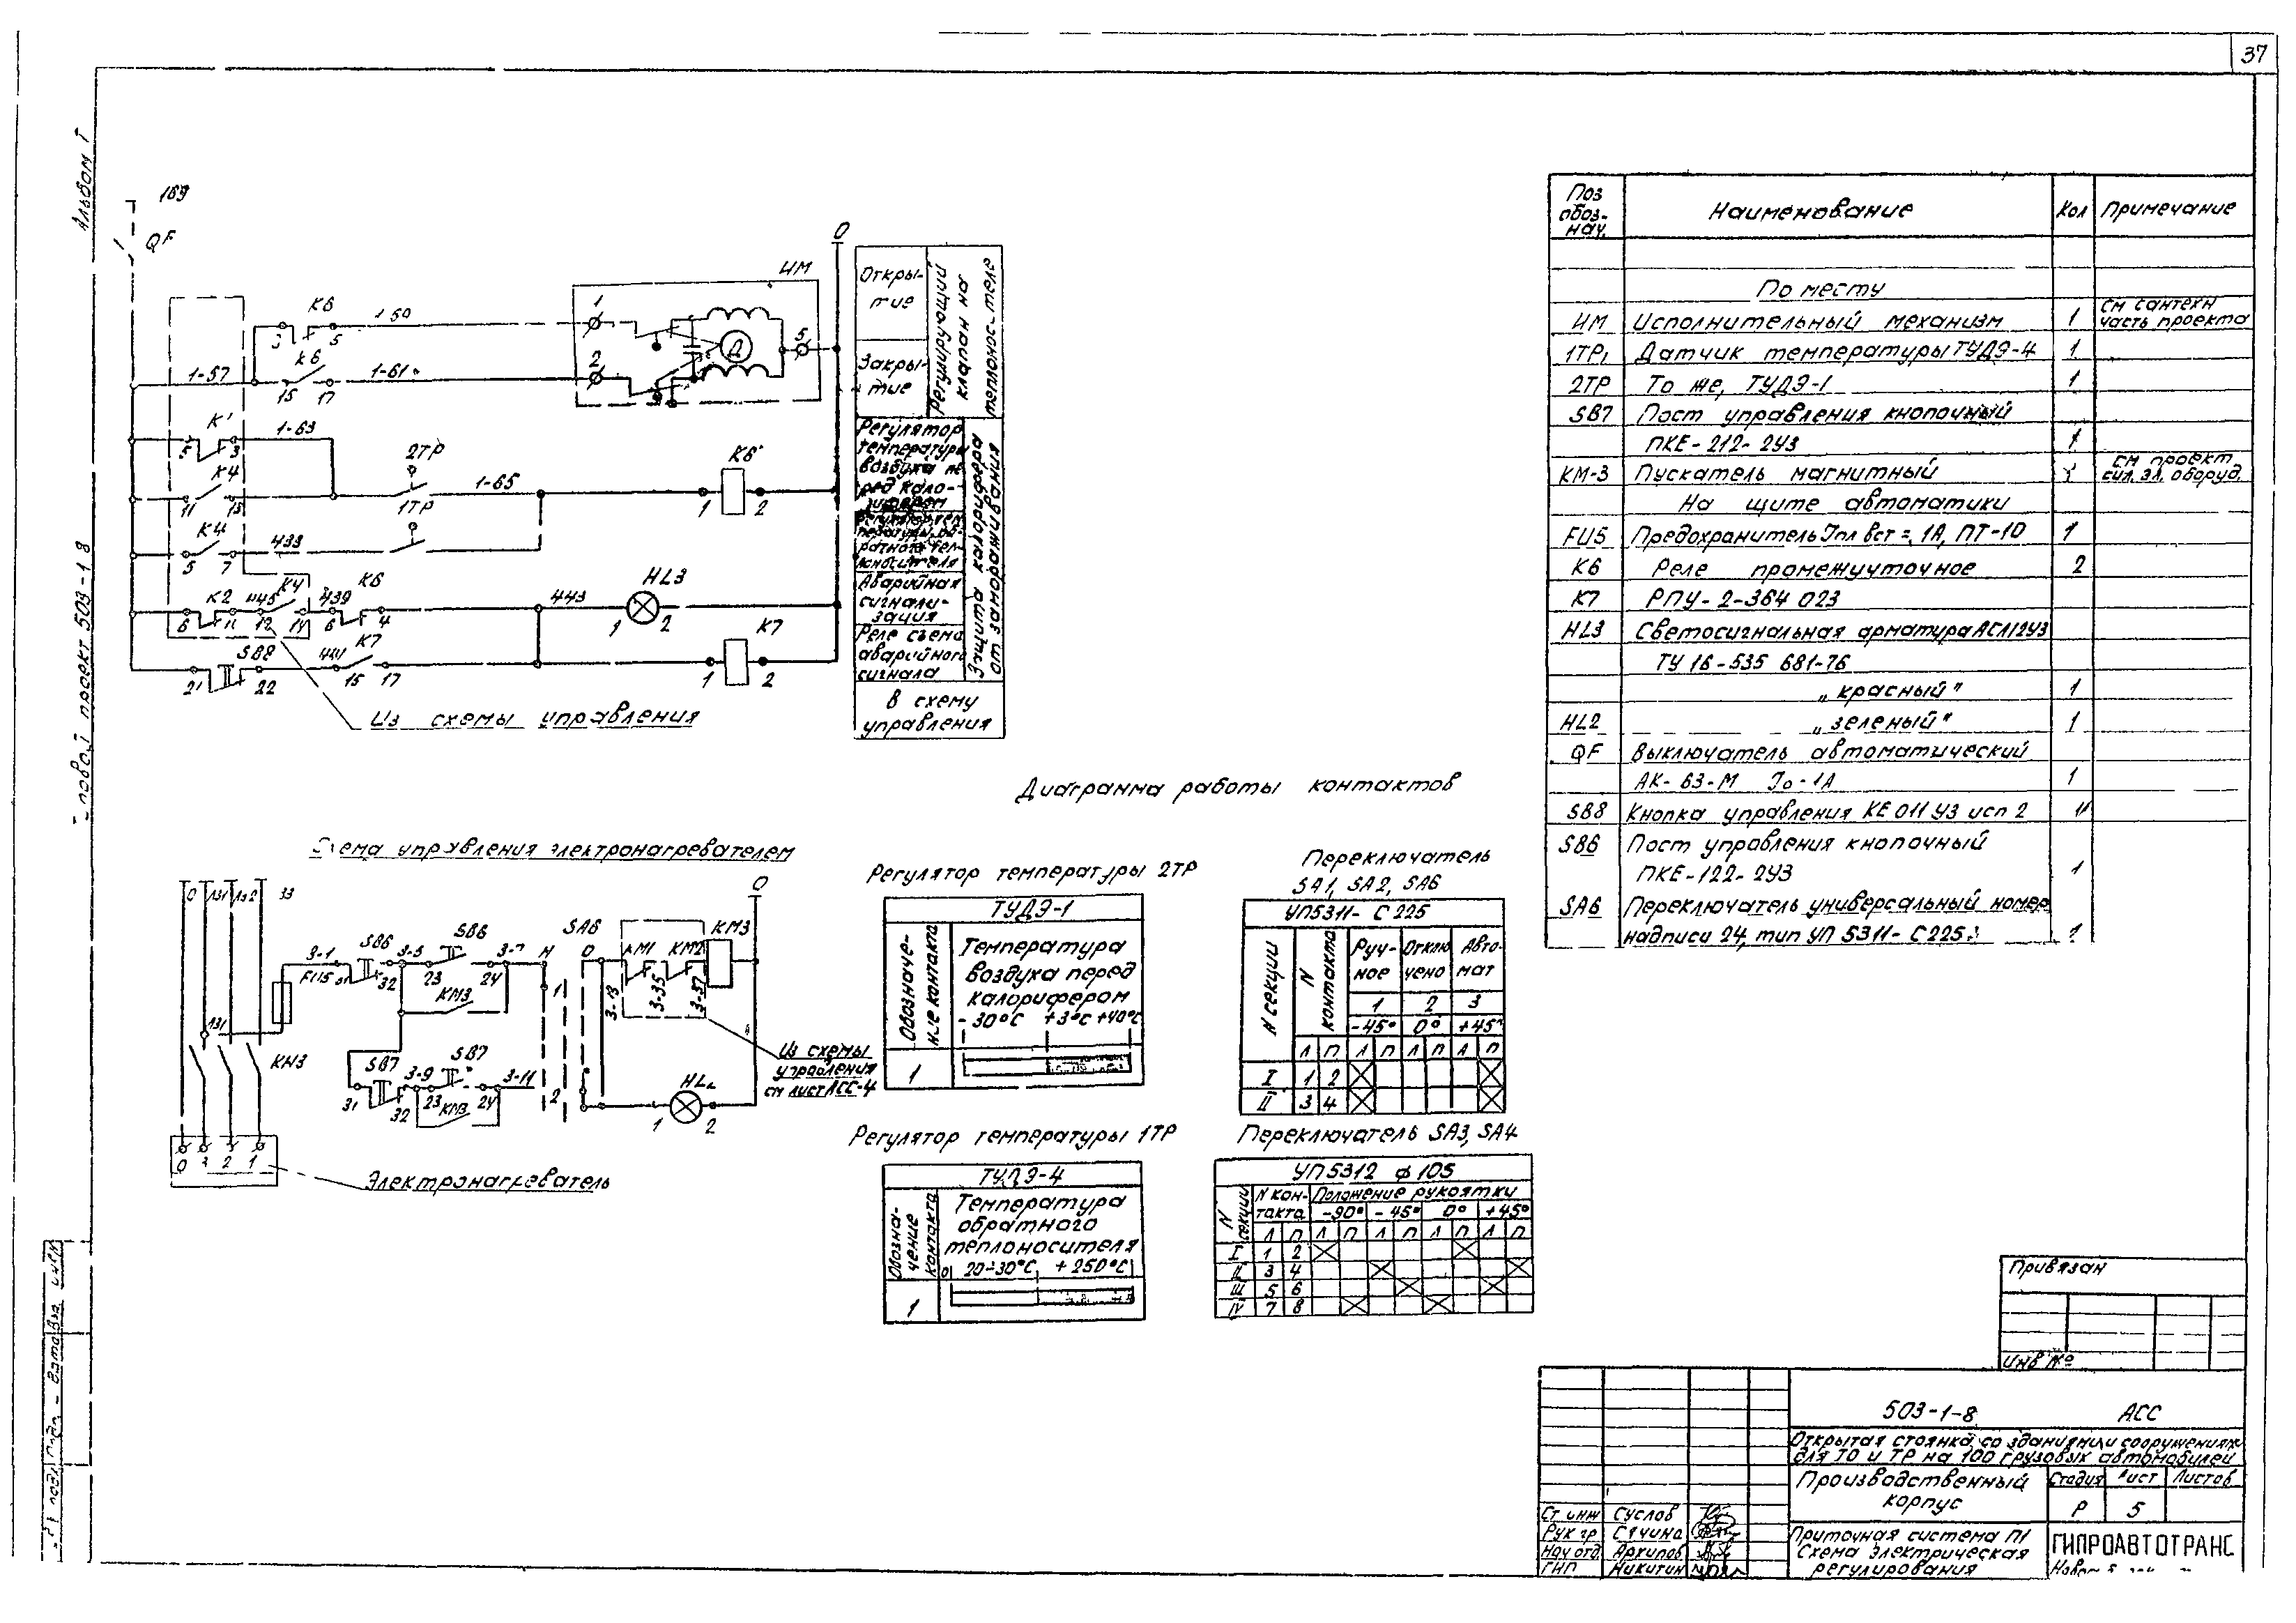 37
Альбом I
проект 503-1 8
169
QF
0
ИМ
К6
1-59
3
5
1
5
К6
1-57
1-61
15
17
2
Д
К1
1-63
5
3
К4
11
13
2ТР
1ТР
1-65
К6
1
2
К4
5
7
433
К2
445
К4
439
К6
6
11
12
14
6
4
443
HL3
1
2
SB8
441
К7
21
22
15
17
К7
1
2
Из схемы управления
Откры-
тие
Закры-
тие
Регулирующий
клапан на
теплоносителе
Регулятор
температуры
воздуха пе-
ред кало-
рифером
ратного теп-
лоносителя
Аварийная
сигнали-
зация
Реле съема
аварийного
сигнала
Защита калорифера
от замораживания
В схему
управления
Поз
обоз-
нач.
Наименование
Кол
Примечание
По месту
ИМ Исполнительный механизм 1 см сантехн
часть проекта
1ТР₁ Датчик температуры ТУДЭ-4 1
2ТР То же, ТУДЭ-1 1
SB7 Пост управления кнопочный
ПКЕ-212-2У3 1
КМ-3 Пускатель магнитный см проект
сил. эл. оборуд.
На щите автоматики
FU5 Предохранитель Iпл вст = 1А, ПТ-10 1
К6 Реле промежуточное 2
К7 РПУ-2-364 023
HL3 Светосигнальная арматура АСЛ12У3
ТУ 16-535 681-76
„красный" 1
HL2 „зеленый" 1
QF Выключатель автоматический
АК-63-М Iо-1А 1
SB8 Кнопка управления КЕ 011 У3 исп 2
SB6 Пост управления кнопочный
ПКЕ-122-2У3 1
SA6 Переключатель универсальный номер
надписи 24, тип УП 5311-С225
Диаграмма работы контактов
Схема управления электронагревателем
0
131
132
33
3-1
FU5
SB6
32
3-5
SB6
23
24
3-7
КМ3
131
КМ3
SB7
31
32
3-9
SB7
23
24
3-11
КМ3
SA6
Н
0
1
2
3-13
КМ1
3-35
КМ2
3-37
КМ3
0
Из схемы
управления
см лист АСС-4
HL₂
1
2
0
3
2
1
Электронагреватель
Регулятор температуры 2ТР
ТУДЭ-1
Обозначе-
ние контакта
Температура
воздуха перед
калорифером
-30°С +3°С +40°С
1
Регулятор температуры 1ТР
ТУДЭ-4
Обозна-
чение
контакта
Температура
обратного
теплоносителя
0 20÷30°С +250°С
1
Переключатель
SA1, SA2, SA6
УП5311-С225
N секции
N
контакта
Руч-
ное
Отклю
чено
Авто-
мат
1 2 3
-45° 0° +45°
Л П Л П Л П Л П
I 1 2
II 3 4
Переключатель SA3, SA4
УП5312 ф105
N
секции
N кон-
такта
Положение рукоятки
-90° -45° 0° +45°
Л П Л П Л П Л П Л П
I 1 2
II 3 4
III 5 6
IV 7 8
Привязан
Инв №
503-1-8 АСС
Открытая стоянка со зданиями и сооружениями
для ТО и ТР на 100 грузовых автомобилей
Производственный
корпус
Стадия Лист Листов
Р 5
Ст инж Суслов
Рук гр Сячина
Нач отд Архипов
ГИП Никитин
Приточная система П1
Схема электрическая
регулирования
ГИПРОАВТОТРАНС